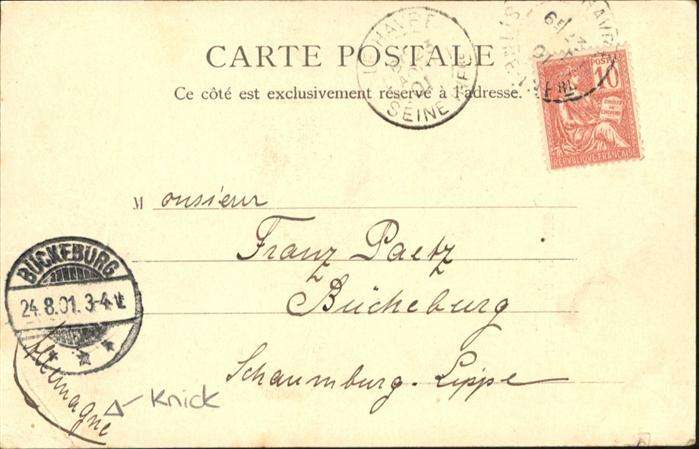 CARTE POSTALE
Ce côté est exclusivement réservé à l'adresse.
LE HAVRE
01
SEINE INFRE
POSTES
10
REPUBLIQUE FRANÇAISE
Monsieur
Franz Paetz
Bückeburg
Schaumburg-Lippe
BÜCKEBURG
24.8.01. 3-4 N.
Allemagne
Knick